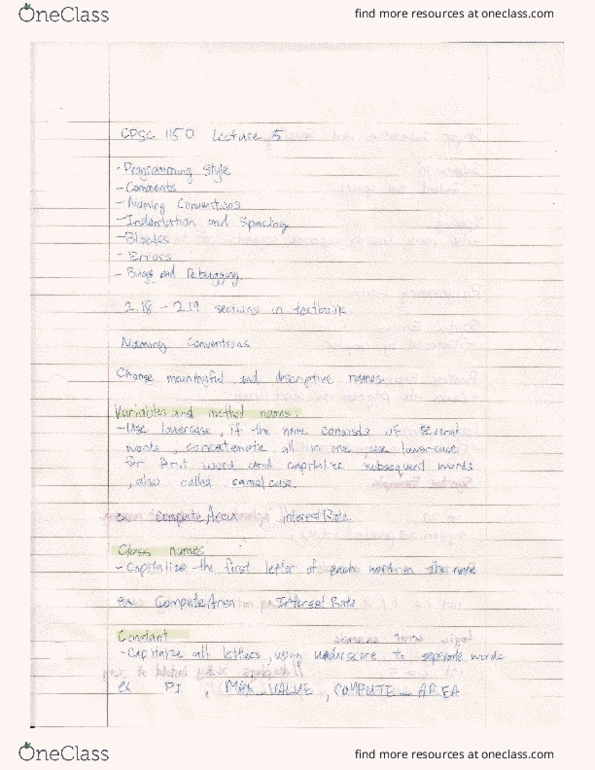 OneClass
find more resources at oneclass.com
CPSC 1150 Lecture 5
- Programming Style
- Comments
- Naming Conventions
- Indentation and Spacing
- Blocks
- Errors
- Bugs and Debugging.
2.18 - 2.19 sections in textbook
Naming Conventions
meaningful and descriptive names.
Variables and method names:
- Use lowercase, if the name consists of several
words, concatenate all in one, use lowercase
for first word and capitalize subsequent words
, also called camelcase.
ex computeArea interestRate
Class names:
- Capitalize the first letter of each word in the name
ex ComputeArea InterestRate
Constant
- Capitalize all letters, using underscore to separate words
ex PI , MAX_VALUE, COMPUTE_AREA
OneClass
find more resources at oneclass.com